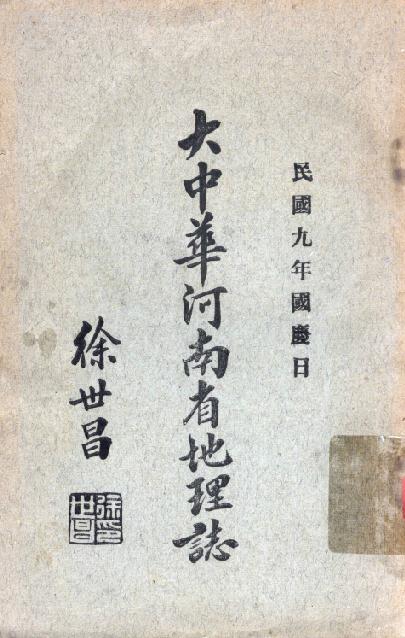 民國九年國慶日
大中華河南省地理誌
徐世昌
徐世昌印